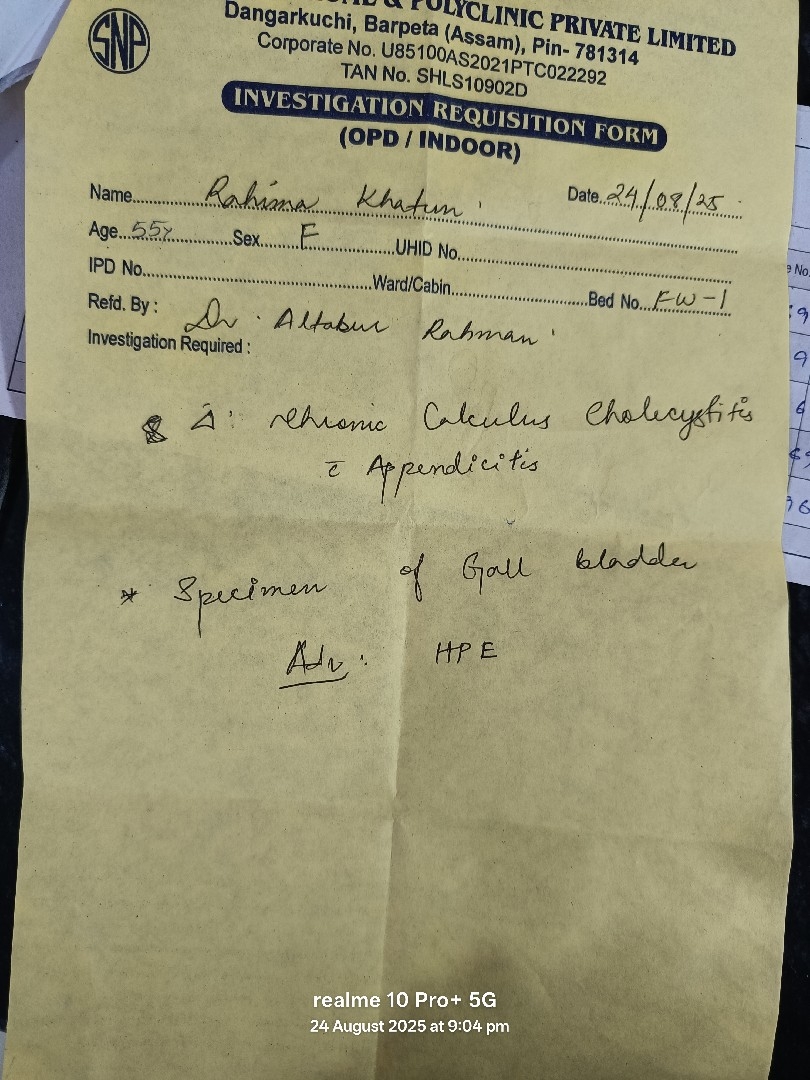 SNP
& POLYCLINIC PRIVATE LIMITED
Dangarkuchi, Barpeta (Assam), Pin- 781314
Corporate No. U85100AS2021PTC022292
TAN No. SHLS10902D
INVESTIGATION REQUISITION FORM
(OPD / INDOOR)
Name Rahima Khatun Date 24/08/25
Age 55y Sex F UHID No.
IPD No. Ward/Cabin Bed No. FW-1
Refd. By : Dr. Altabur Rahman
Investigation Required :
Δ: Chronic Calculus Cholecystitis
c̄ Appendicitis
* Specimen of Gall bladder
Adv: HPE
realme 10 Pro+ 5G
24 August 2025 at 9:04 pm